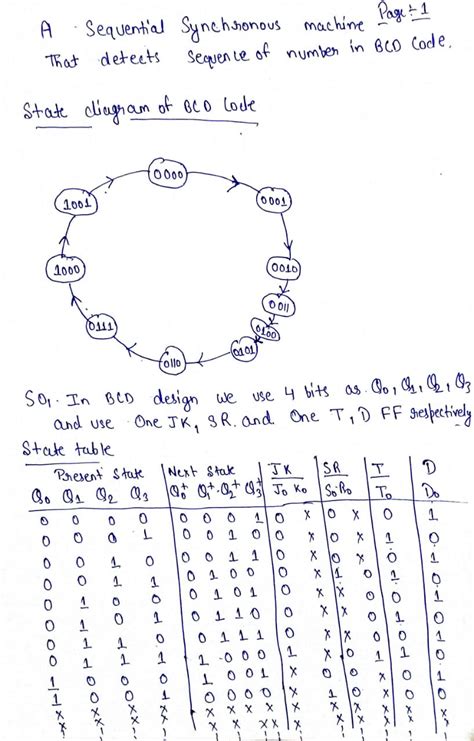 Page:-1
A Sequential Synchronous machine
That detects sequence of number in BCD Code.
State diagram of BCD Code
0000
0001
0010
0011
0100
0101
0110
0111
1000
1001
SO, In BCD design we use 4 bits as Q0, Q1, Q2, Q3
and use One JK, SR. and One T, D FF respectively
State table
Present State Next State JK SR T D
Q0 Q1 Q2 Q3 Q0+ Q1+ Q2+ Q3+ J0 K0 S0 R0 T0 D0
0 0 0 0 0 0 0 1 0 x 0 x 0 1
0 0 0 1 0 0 1 0 0 x 0 x 1 0
0 0 1 0 0 0 1 1 0 x 0 x 0 1
0 0 1 1 0 1 0 0 0 x 1 0 1 0
0 1 0 0 0 1 0 1 0 x x x 0 0 1
0 1 0 1 0 1 1 0 0 x x 0 1 0
0 1 1 0 0 1 1 1 0 x x 0 0 1
0 1 1 1 1 0 0 0 1 x x 0 1 1 0
1 0 0 0 1 0 0 1 x 0 0 x 0 1
1 0 0 1 0 0 0 0 x x 1 0 x 0